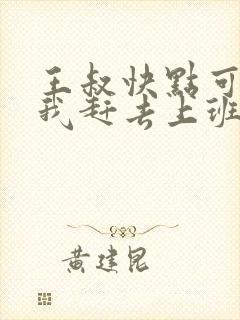 王叔快點可
我赶去上班
黄建昆